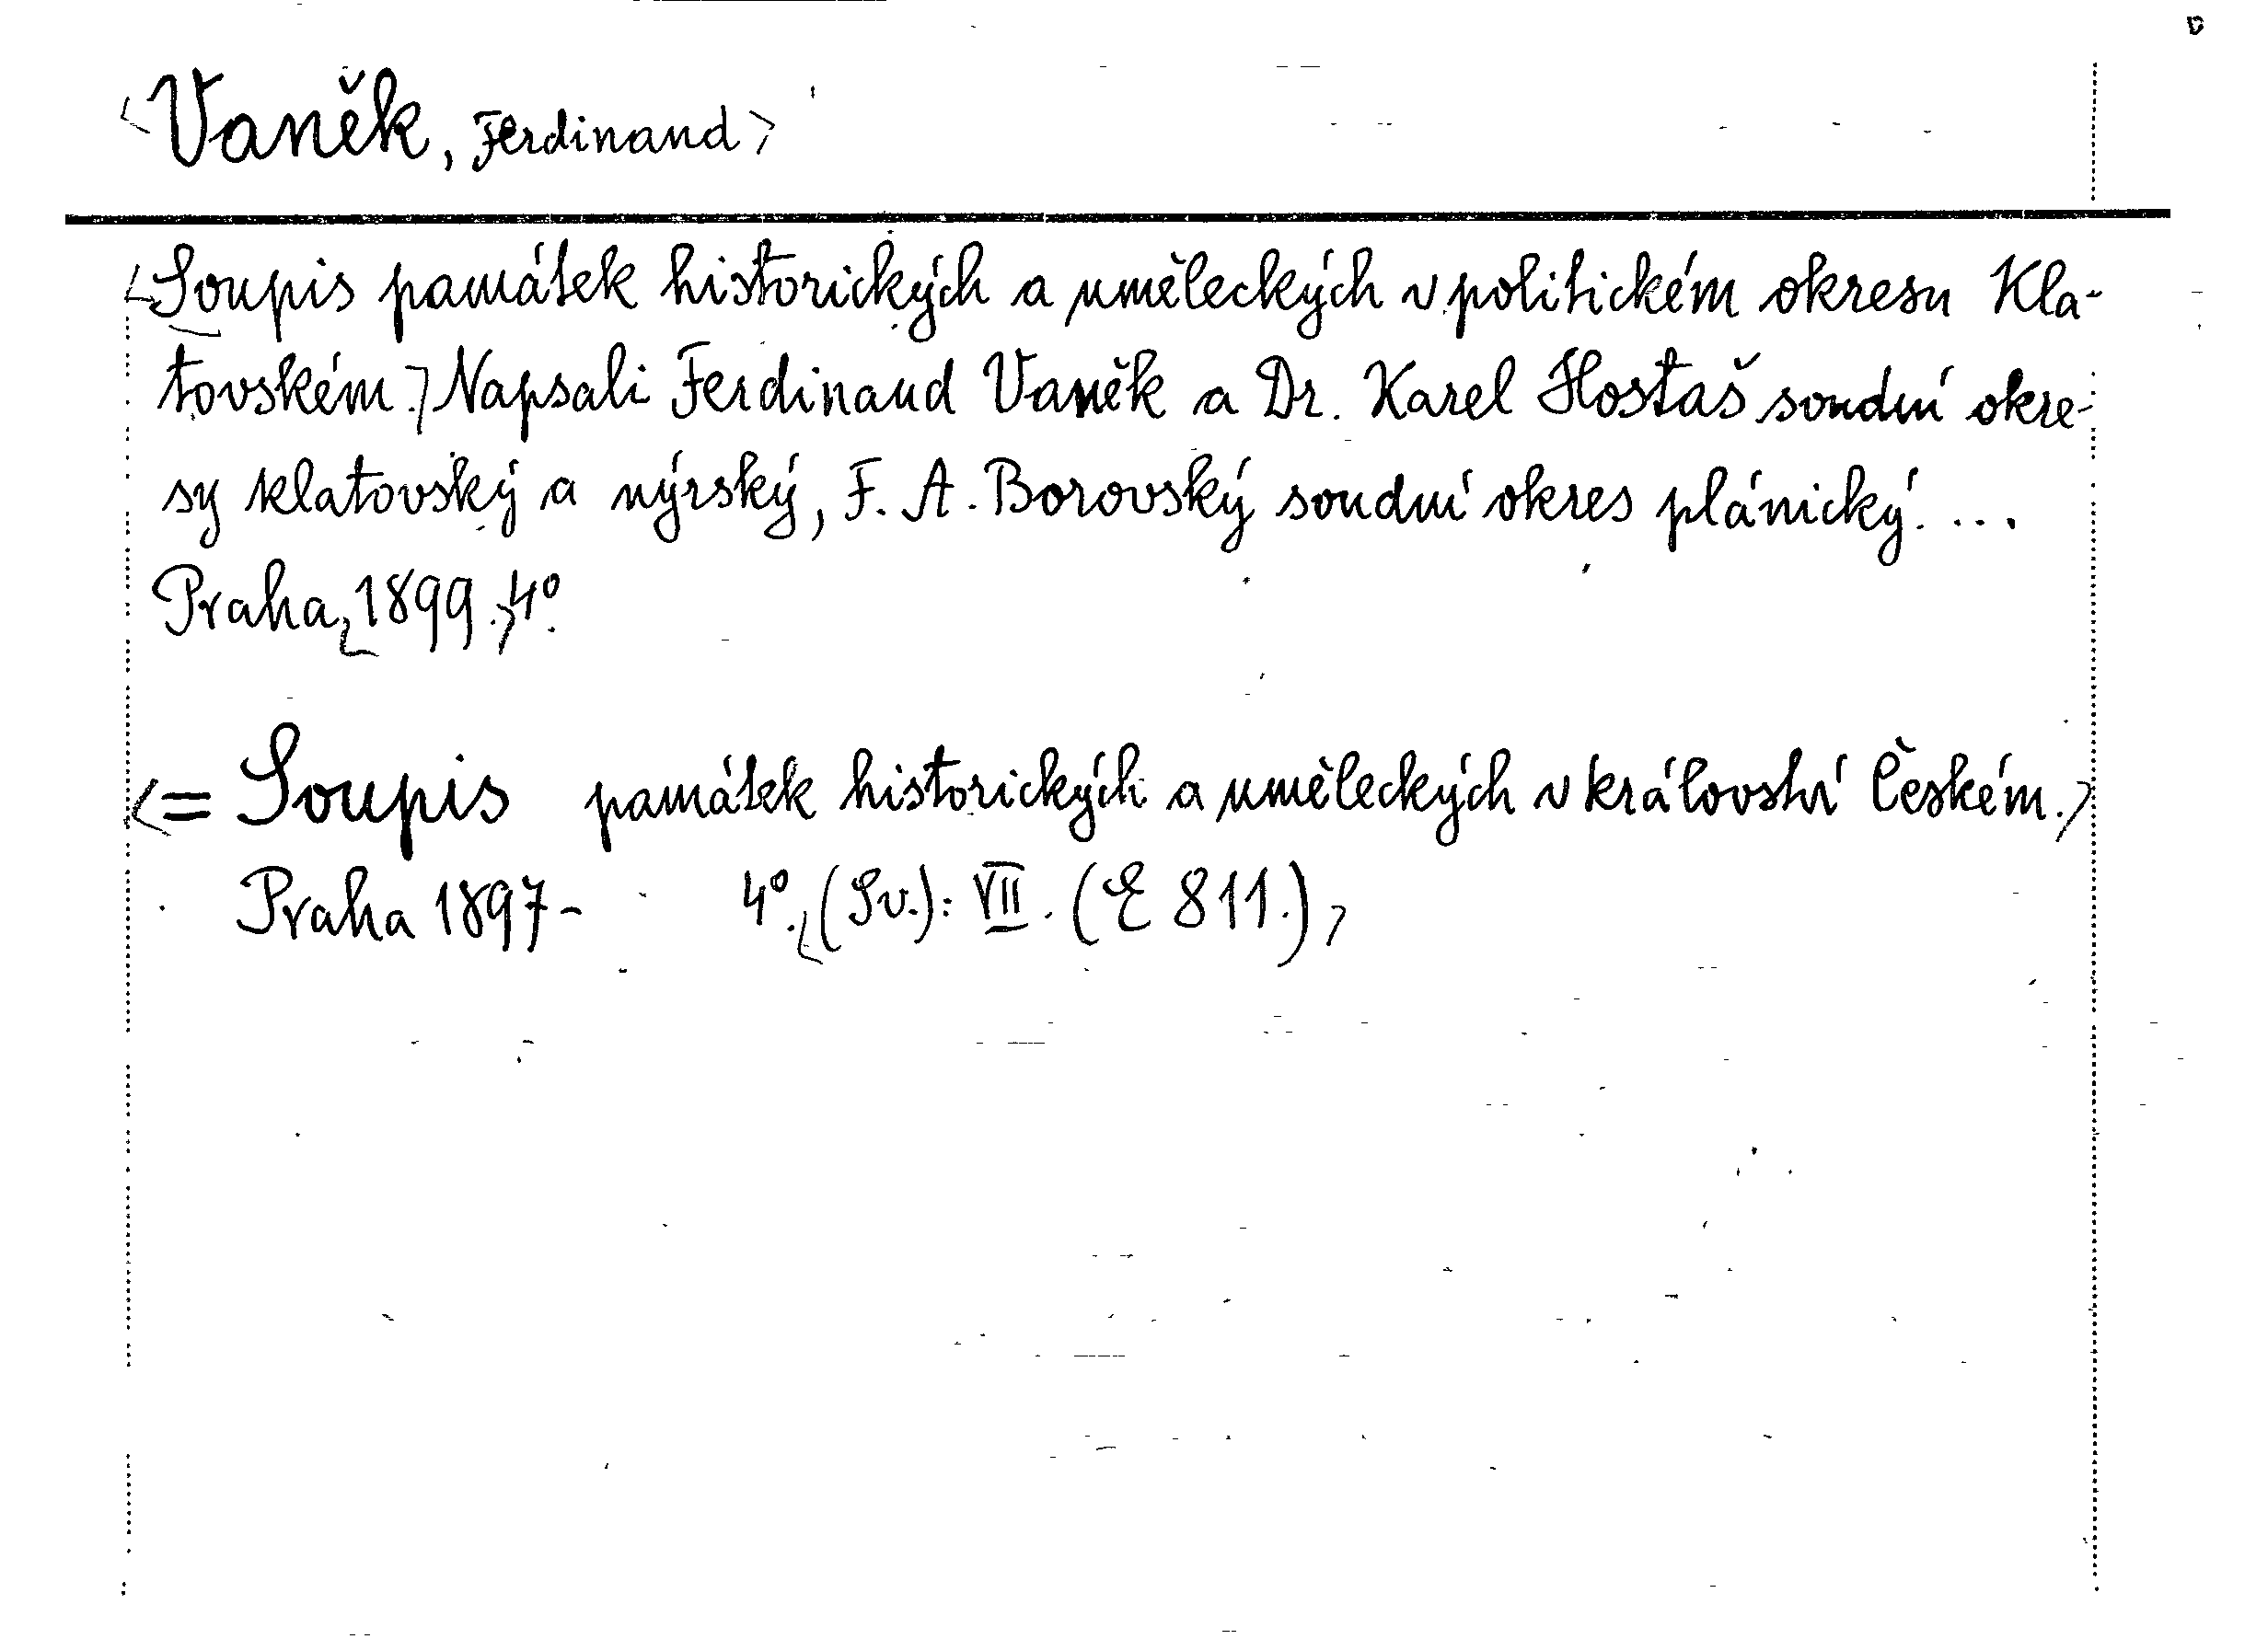 <Vaněk, Ferdinand>
<Soupis památek historických a uměleckých v politickém okresu Kla-
tovském.> Napsali Ferdinand Vaněk a Dr. Karel Hostaš soudní okre-
sy klatovský a nýrský, F. A. Borovský soudní okres plánický. ...
Praha,<1899.>4°.
<= Soupis památek historických a uměleckých v království Českém.>
Praha 1897- 4°.<(Sv.): VII. (E 811.)>